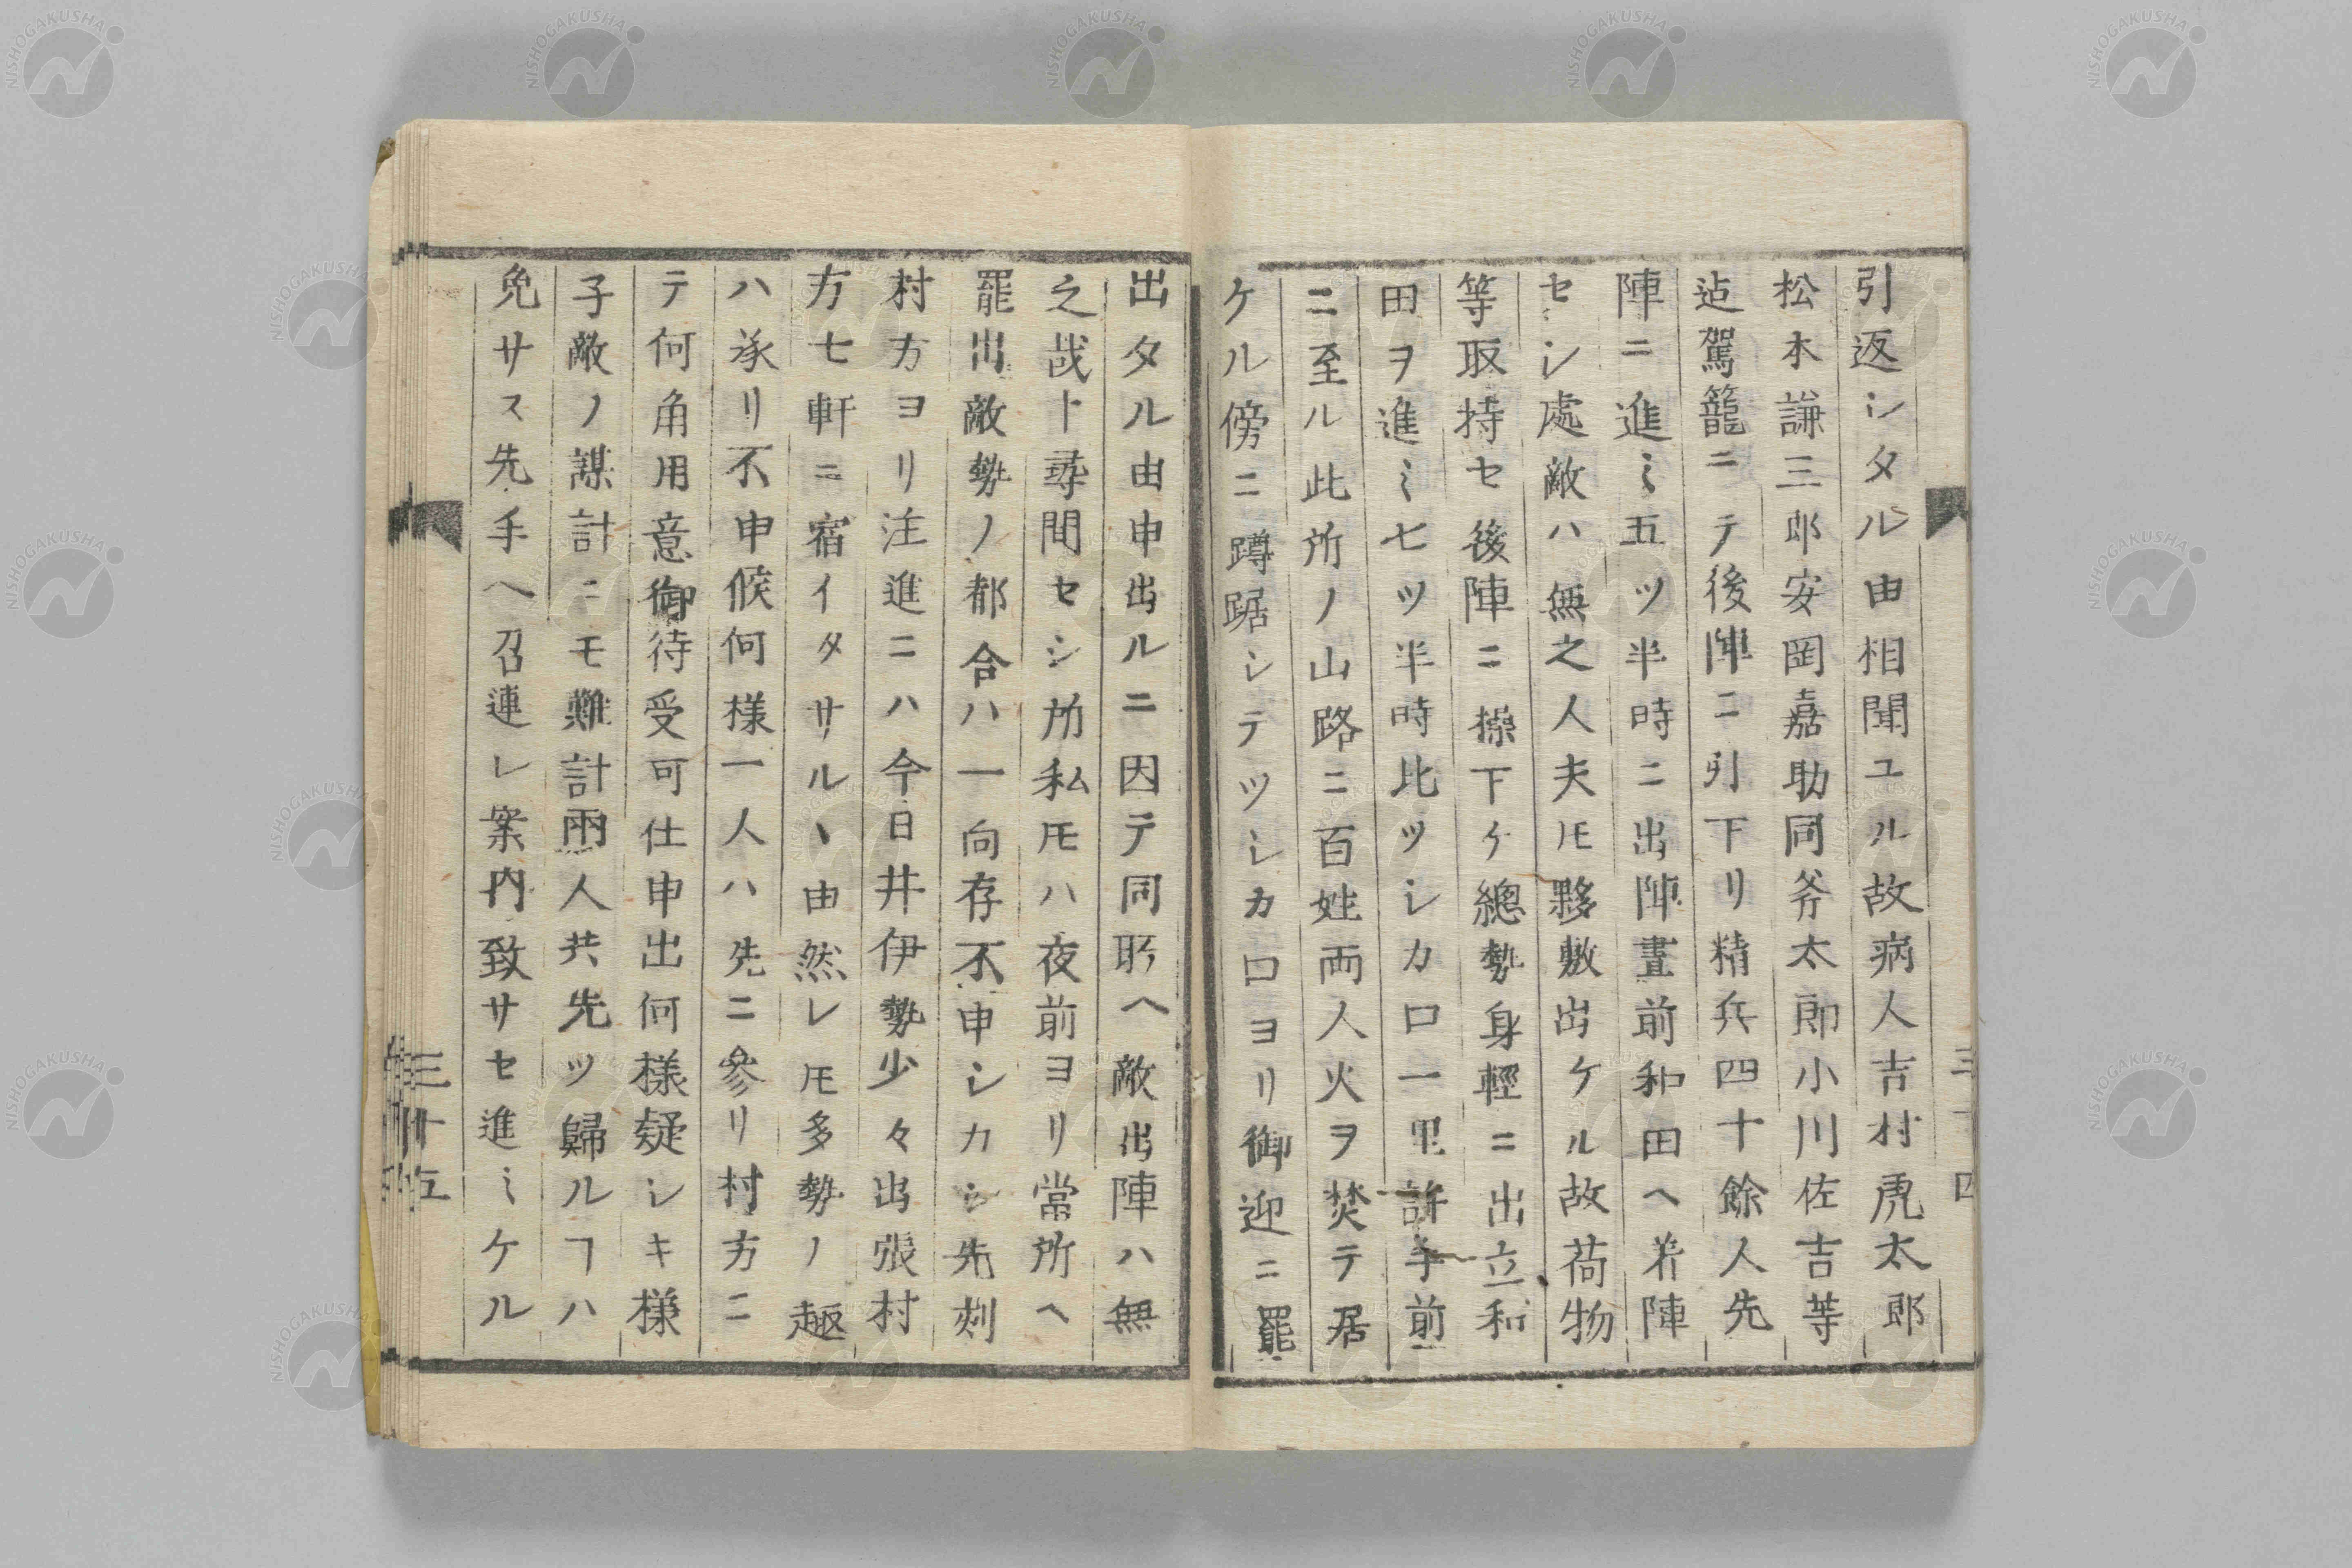 引返シタル由相聞ユル故病人吉村虎太郎
松本謙三郎安岡嘉助同斧太郎小川佐吉等
迠駕籠ニテ後陣ニ引下リ精兵四十餘人先
陣ニ進ミ五ツ半時ニ出陣晝前和田ヘ着陣
セシ處敵ハ無之人夫𪜈夥敷出ケル故荷物
等取持セ後陣ニ操下ケ總勢身輕ニ出立和
田ヲ進ミ七ツ半時比ツシカ口一里許手前
ニ至ル此所ノ山路ニ百姓両人火ヲ焚テ居
ケル傍ニ蹲踞シテツシカ口ヨリ御迎ニ罷
三十四
出タル由申出ルニ因テ同所ヘ敵出陣ハ無
之哉ト尋問セシ所私𪜈ハ夜前ヨリ當所ヘ
罷出敵勢ノ都合ハ一向存不申シカシ先刻
村方ヨリ注進ニハ今日井伊勢少々出張村
方七軒ニ宿イタサルヽ由然レ𪜈多勢ノ趣
ハ承リ不申候何様一人ハ先ニ參リ村方ニ
テ何角用意御待受可仕申出何様疑シキ様
子敵ノ謀計ニモ難計兩人共先ツ歸ルヿハ
免サス先手ヘ召連レ案内致サセ進ミケル
三十五
NISHOGAKUSHA